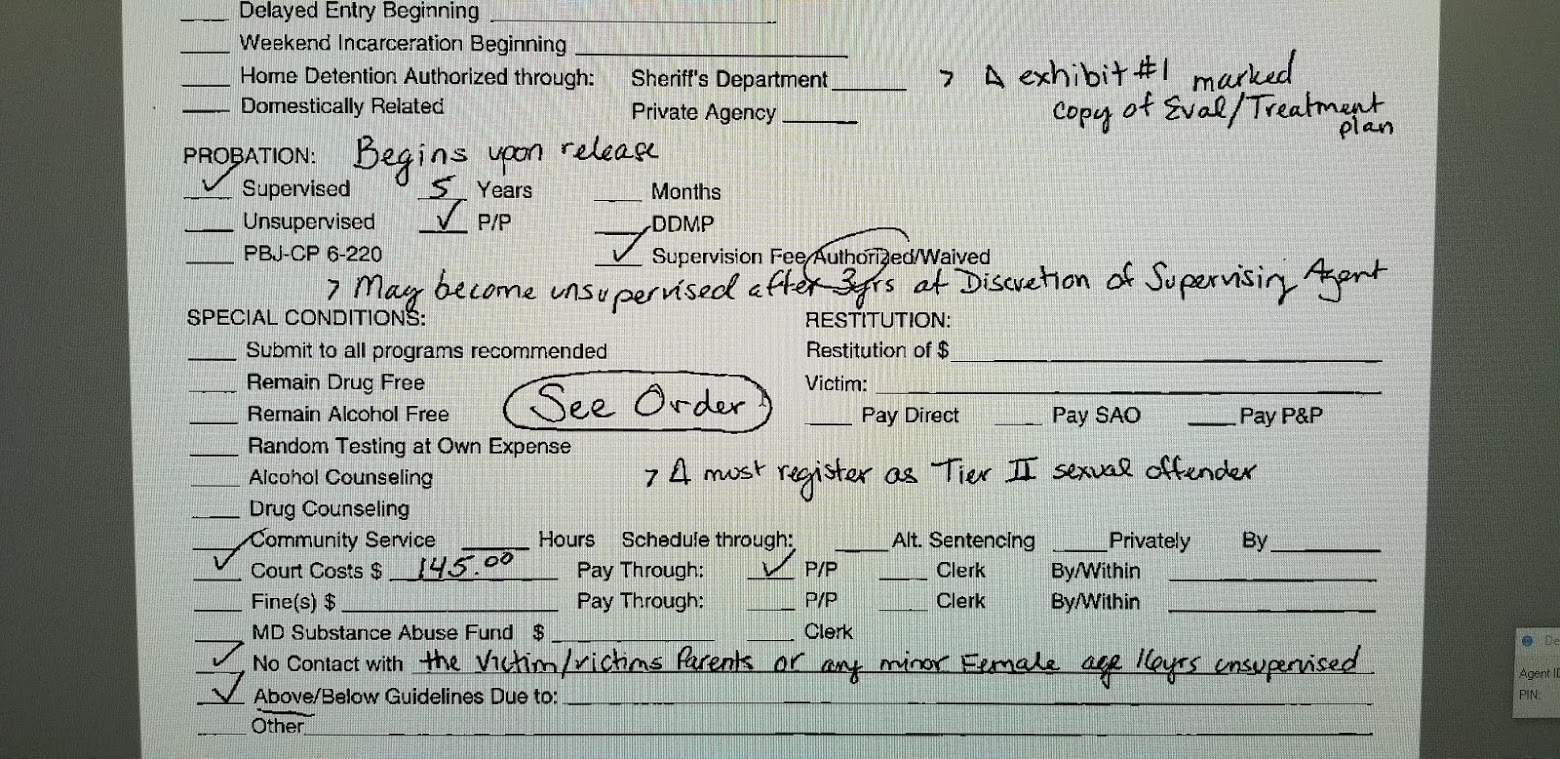 Delayed Entry Beginning
Weekend Incarceration Beginning
Home Detention Authorized through: Sheriff's Department > Δ exhibit #1 marked
Domestically Related Private Agency copy of Eval/Treatment plan
PROBATION: Begins upon release
✓ Supervised 5 Years Months
Unsupervised ✓ P/P DDMP
PBJ-CP 6-220 ✓ Supervision Fee Authorized/Waived
> May become unsupervised after 3yrs at Discretion of Supervising Agent
SPECIAL CONDITIONS: RESTITUTION:
Submit to all programs recommended Restitution of $
Remain Drug Free See Order Victim:
Remain Alcohol Free Pay Direct Pay SAO Pay P&P
Random Testing at Own Expense
Alcohol Counseling > Δ must register as Tier II sexual offender
Drug Counseling
Community Service Hours Schedule through: Alt. Sentencing Privately By
✓ Court Costs $ 145.00 Pay Through: ✓ P/P Clerk By/Within
Fine(s) $ Pay Through: P/P Clerk By/Within
MD Substance Abuse Fund $ Clerk
✓ No Contact with the victim/victims Parents or any minor Female age 16yrs unsupervised
✓ Above/Below Guidelines Due to:
Other
De
Agent ID
PIN: